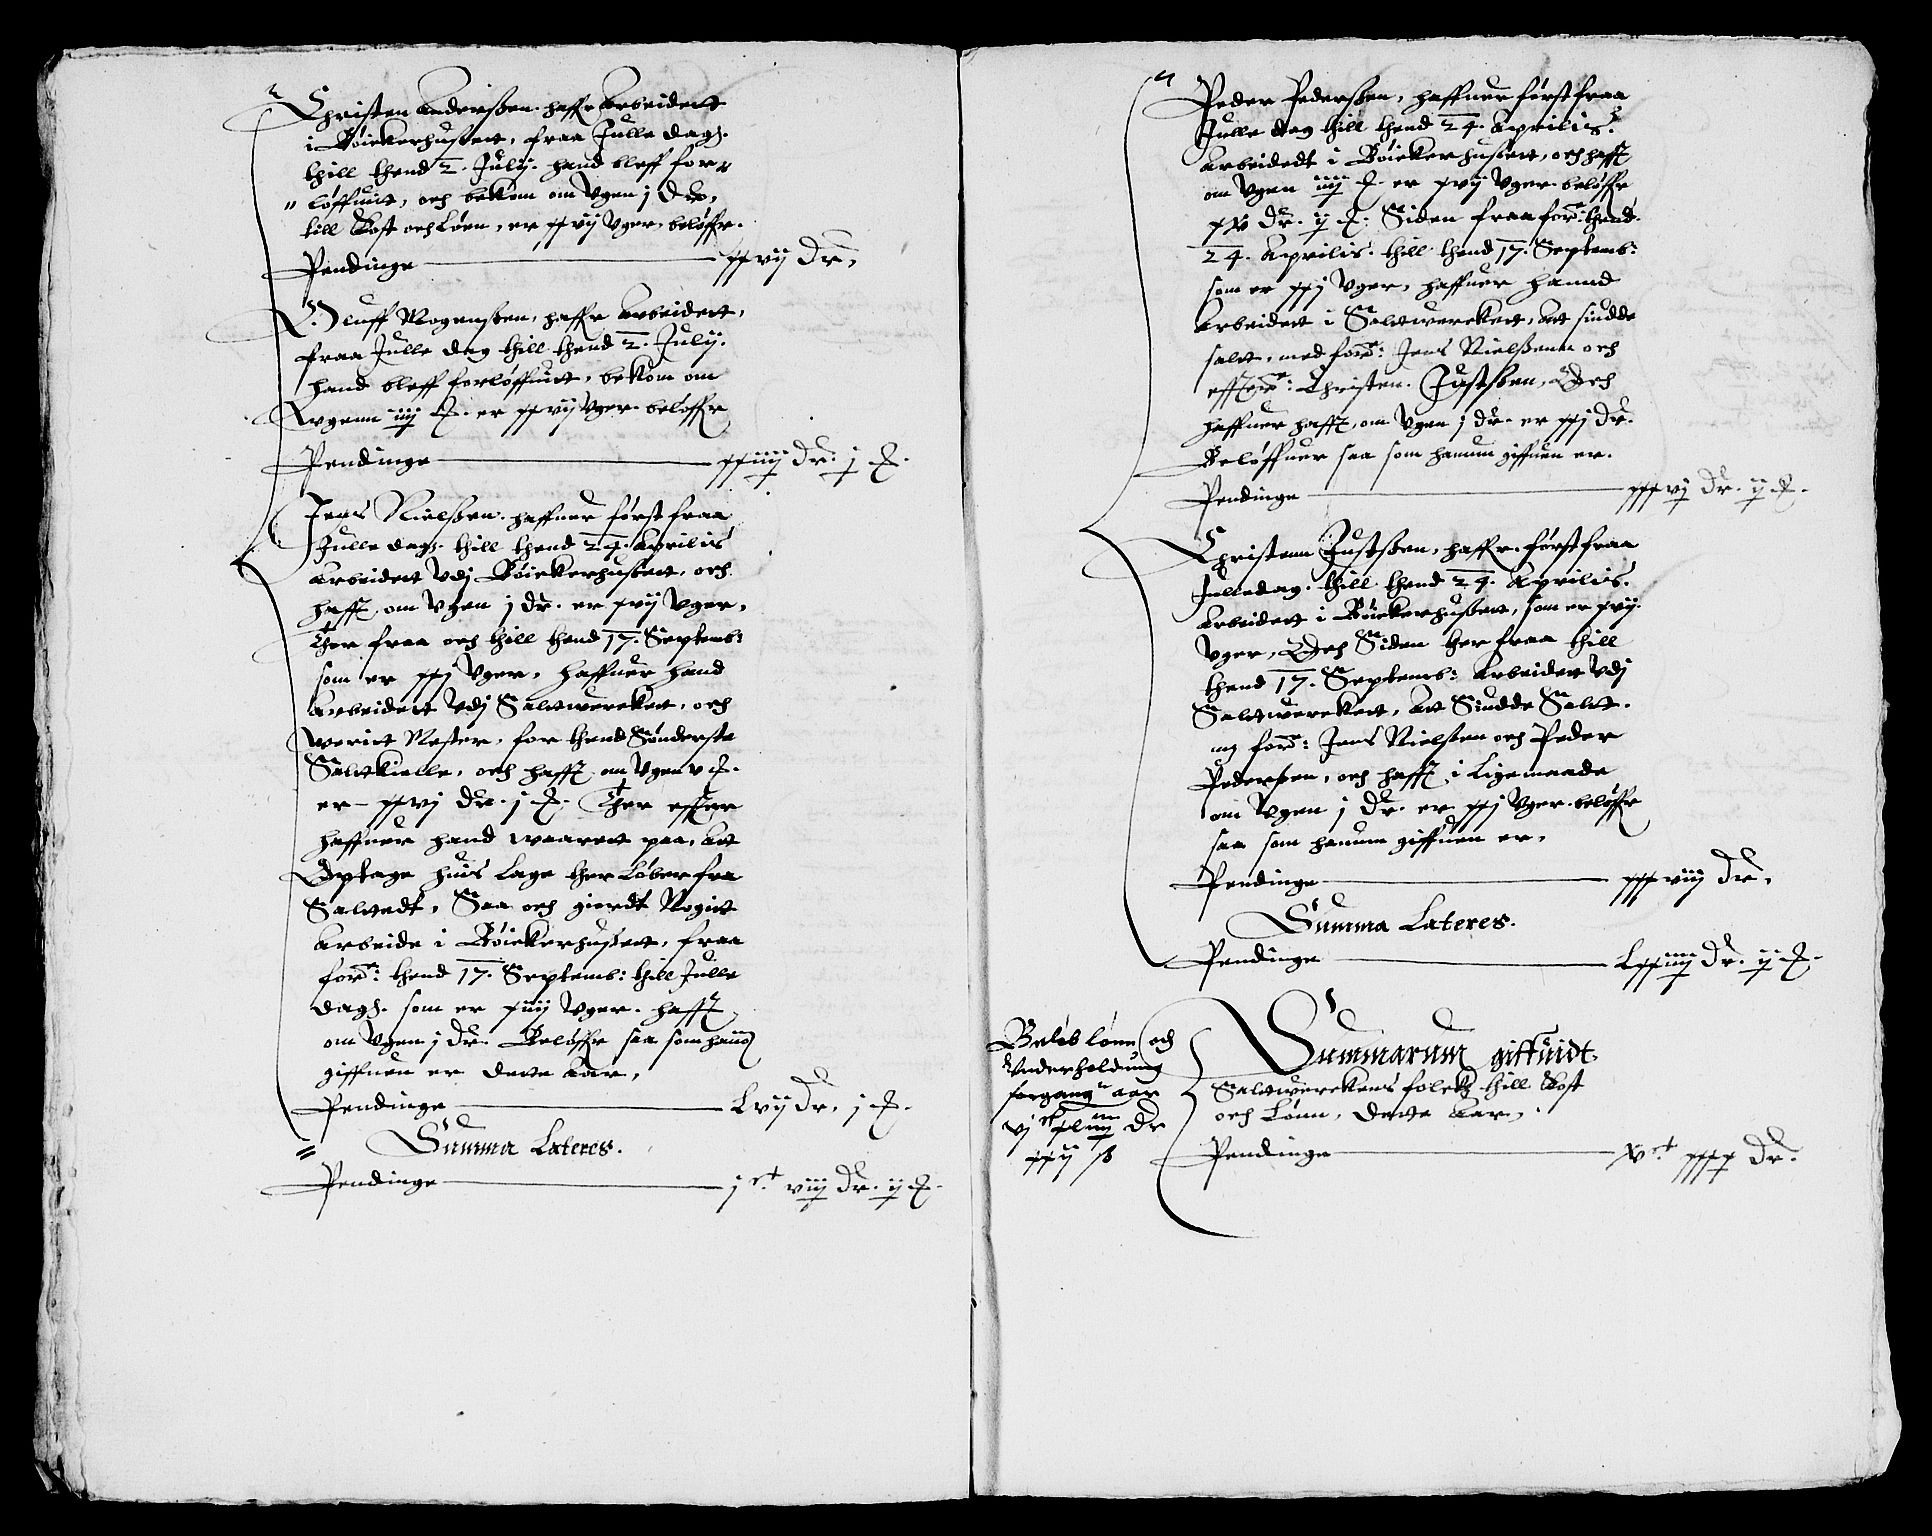 Christen Anderßen haffr Arbeidett
i Bøickerhußett, fraa Julle dag
thill thend 2. Julij. hand bleff for„
„ løffuit, och bekom om Vgen j Dlr,
till Kost och Løen, er xxvij Vger, beløffr.
Pendinge — xxvij Dlr,
Oluff Mogenßen, haffr Arbeidett,
fraa Julle dag thill thend 2. Julij.
hand bleff forløffuit, bekom om
Vgenn iiij ₰. er xxvij Vger. beløffr
Pendinge — xxiiij Dlr. j ₰.
Jens Nielßen haffuer først fraa
Julle dag. thill thend 24. Aprilis
Arbeidett vdj Bøickerhußett, och
hafft, om Vgen j dlr. er xvij Vger,
Ther fraa och thill thend 17. Septemb:
som er xxj Vger, haffuer hand
Arbeidett vdj Saltwerckett, och
werit Mester, for thend Sønderste
Saltkielle, och hafft om Vgen v ₰.
er – xxvj Dlr. j ₰. Ther effter
haffuer hand waarett paa, Att
Optage huis Lage ther Løber fra
Saltedt, Saa och giordt Nogit
Arbeide i Bøickerhußett, fraa
ford: thend 17. Septemb: thill Julle
dag. som er xiiij Vger. hafft
om Vgen j Dlr. Beløffr saa som hannom
giffuen er dette Aar,
Pendinge — Lvij Dlr. j ₰.
Summa Lateres.
Pendinge — j ct viij Dlr. ij ₰.
Peder Pederßen, haffuer først fraa
Julle dag thill thend 24. Aprilis.
Arbeidedt i Bøickerhußett, och hafft
om Vgen iiij ₰. er xvij Vger. beløffr
xv Dlr. ij ₰. Siden fraa ford: thend
24. Aprilis. thill thend 17. Septemb:
som er xxj Vger, haffuer hannd
Arbeidett i Saltwerckett, Att siudde
salt, med ford: Jens Nielßenn och
effterne: Christen Justßen, Och
haffuer hafft, om Vgen j dlr. er xxj Dlr.
Beløffuer saa som hanum giffuen er.
Pendinge — xxxvj Dlr. ij ₰.
Christenn Justßen, haffr. først fraa
Julledag. thill thend 24. Aprilis.
Arbeidett i Bøickerhußett, som er xvij.
Vger, Och Siden her fraa thill
thend 17. Septemb: Arbeidett vdj
Saltwerckett, Att Siudde Salt.
mz ford: Jens Nielßen och Peder
Pederßen, och hafft i Ligemaade
om Vgen j Dlr. er xxj Vger. beløffr
saa som hanum giffuen er,
Pendinge — xxxviij Dlr,
Summa Lateres.
Pendinge — Lxxiiij Dlr. ij ₰.
Beløb Lønn och
Vnderholdung
forgang aar
vj ct xliiij Dlr
xxij ß
Summarum giffuidt
Saltwerckens folck thill Kost
och Lønn, dette Aar,
Pendinge — v ct xxxx Dlr.